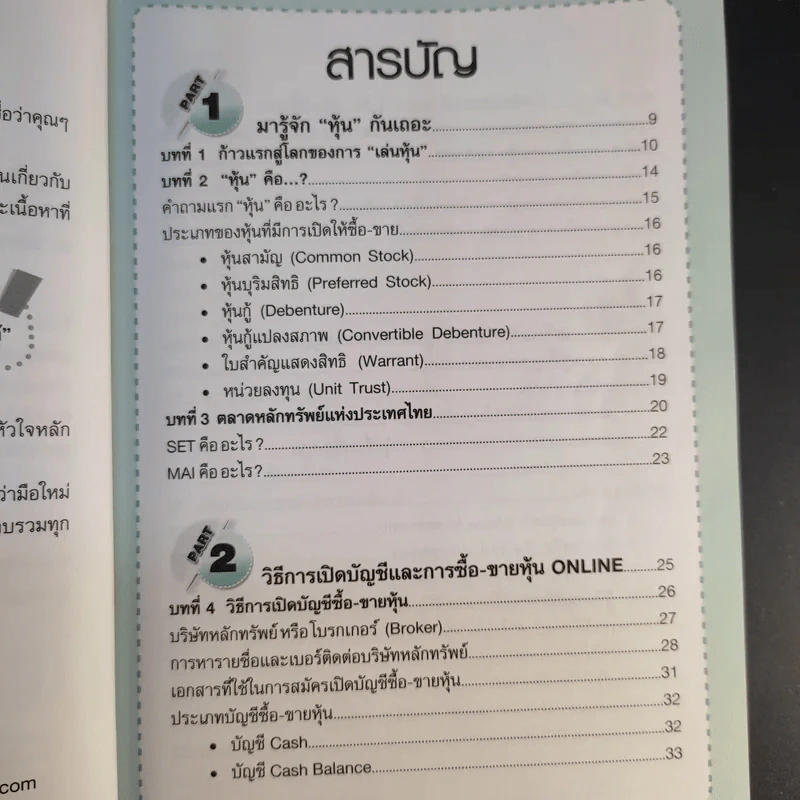 สารบัญ
PART 1
มารู้จัก “หุ้น” กันเถอะ........9
บทที่ 1 ก้าวแรกสู่โลกของการ “เล่นหุ้น”........10
บทที่ 2 “หุ้น” คือ...?........14
คำถามแรก “หุ้น” คือ อะไร ?........15
ประเภทของหุ้นที่มีการเปิดให้ซื้อ-ขาย........16
• หุ้นสามัญ (Common Stock)........16
• หุ้นบุริมสิทธิ (Preferred Stock)........16
• หุ้นกู้ (Debenture)........17
• หุ้นกู้แปลงสภาพ (Convertible Debenture)........17
• ใบสำคัญแสดงสิทธิ (Warrant)........18
• หน่วยลงทุน (Unit Trust)........19
บทที่ 3 ตลาดหลักทรัพย์แห่งประเทศไทย........20
SET คือ อะไร ?........22
MAI คือ อะไร?........23
PART 2
วิธีการเปิดบัญชีและการซื้อ-ขายหุ้น ONLINE........25
บทที่ 4 วิธีการเปิดบัญชีซื้อ-ขายหุ้น........26
บริษัทหลักทรัพย์ หรือ โบรกเกอร์ (Broker)........27
การหารายชื่อและเบอร์ติดต่อบริษัทหลักทรัพย์........28
เอกสารที่ใช้ในการสมัครเปิดบัญชีซื้อ-ขายหุ้น........31
ประเภทบัญชีซื้อ-ขายหุ้น........32
• บัญชี Cash........32
• บัญชี Cash Balance........33
ว่าคุณๆ
เกี่ยวกับ
เนื้อหาที่
หัวใจหลัก
ว่ามือใหม่
รวมทุก
.com